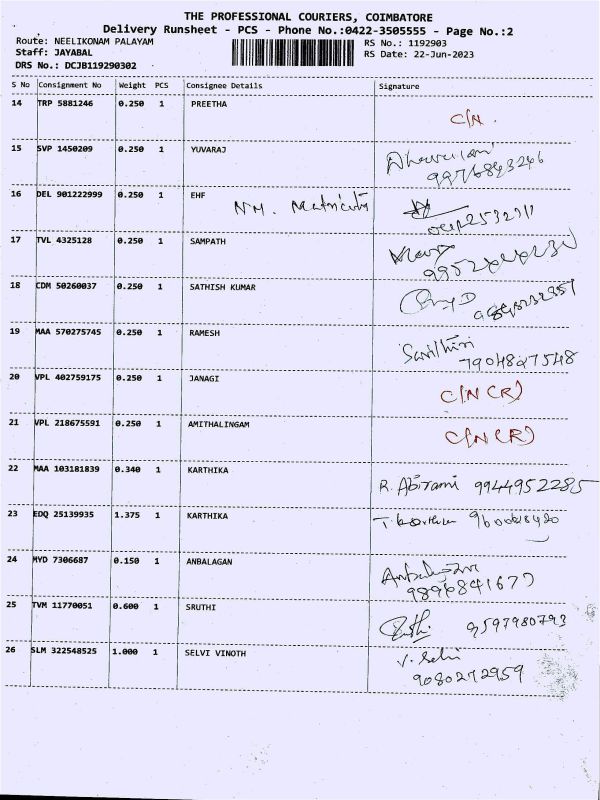 THE PROFESSIONAL COURIERS, COIMBATORE
Delivery Runsheet - PCS - Phone No.:0422-3505555 - Page No.:2
Route: NEELIKONAM PALAYAM
RS No.: 1192903
Staff: JAYABAL
RS Date: 22-Jun-2023
DRS No.: DCJB119290302
S No Consignment No Weight PCS Consignee Details Signature
14 TRP 5881246 0.250 1 PREETHA
C/N.
15 SVP 1450209 0.250 1 YUVARAJ
16 DEL 901222999 0.250 1 EHF
17 TVL 4325128 0.250 1 SAMPATH
18 CDM 50260037 0.250 1 SATHISH KUMAR
19 MAA 570275745 0.250 1 RAMESH
7904827548
20 VPL 402759175 0.250 1 JANAGI
C/N (R)
21 VPL 218675591 0.250 1 AMITHALINGAM
C/N (R)
22 MAA 103181839 0.340 1 KARTHIKA
R. Abirami 9944952285
23 EDQ 25139935 1.375 1 KARTHIKA
24 MYD 7306687 0.150 1 ANBALAGAN
25 TVM 11770051 0.600 1 SRUTHI
9597980793
26 SLM 322548525 1.000 1 SELVI VINOTH
V. Selvi
9080272959